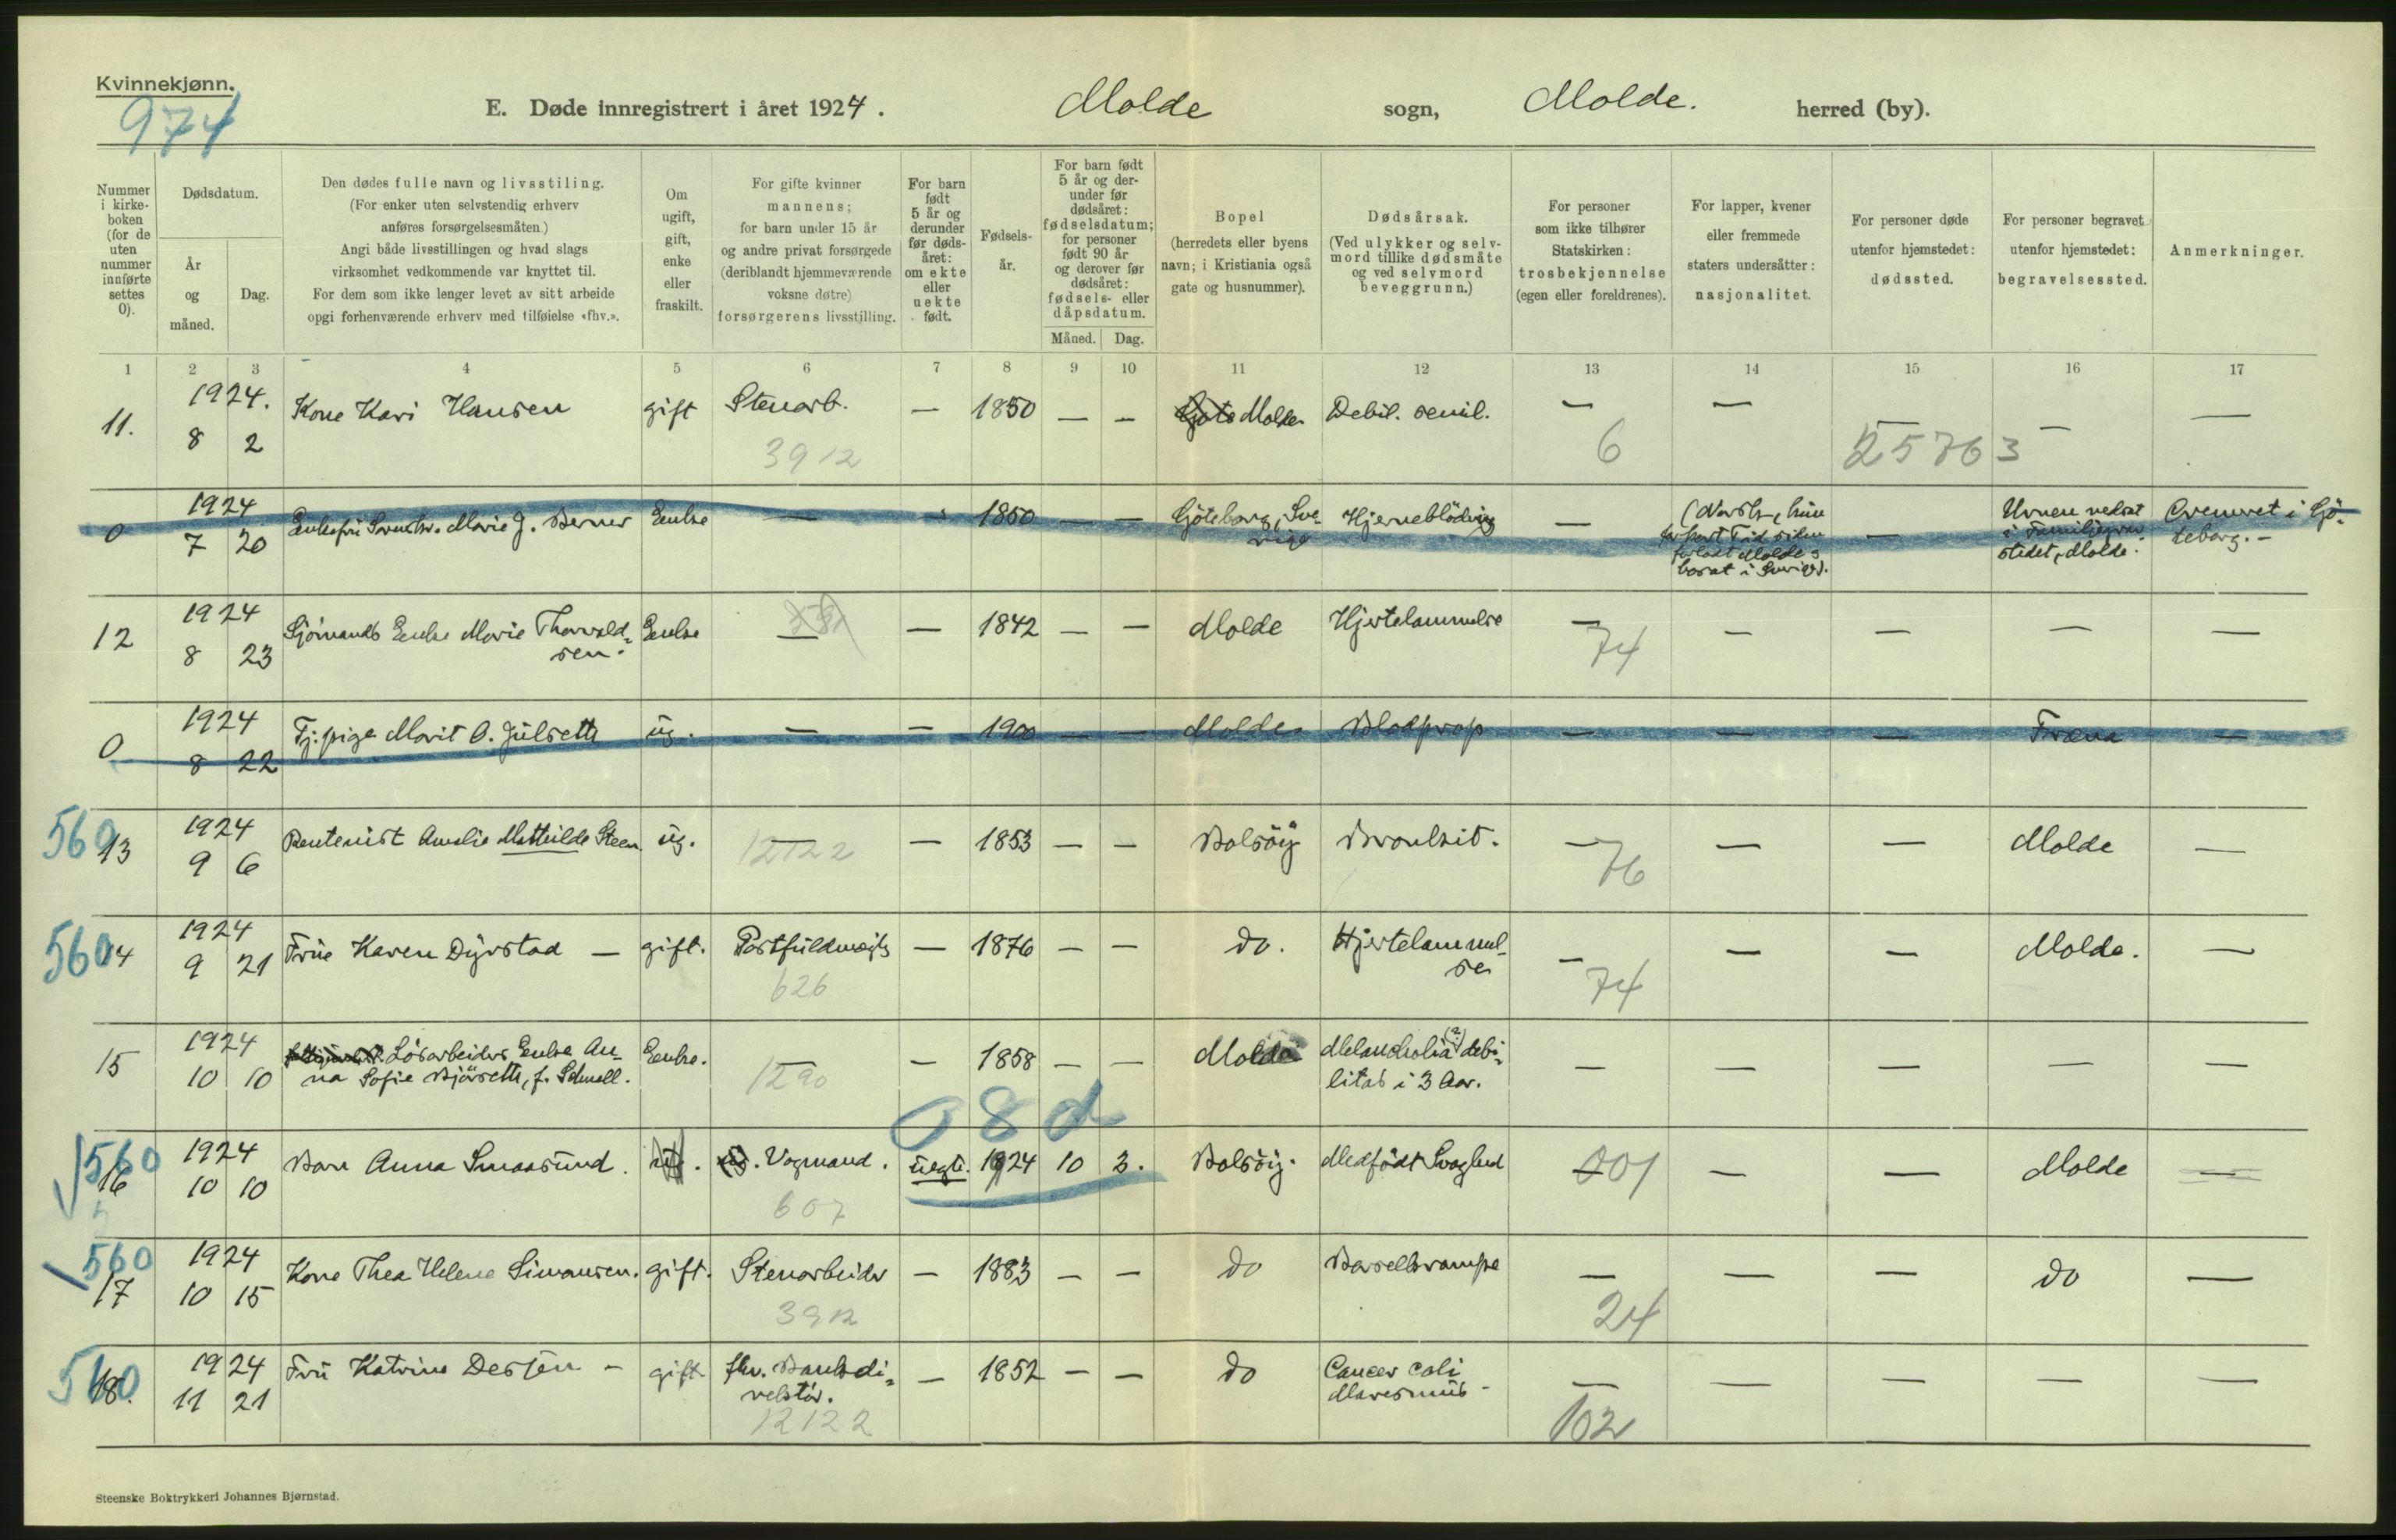 Kvinnekjønn.
974
E. Døde innregistrert i året 1924. Molde sogn, Molde. herred (by).
Nummer i kirke-boken (for de uten nummer innførte settes 0).
Dødsdatum.
År og måned.
Dag.
Den dødes fulle navn og livsstiling.
(For enker uten selvstendig erhverv
anføres forsørgelsesmåten)
Angi både livsstillingen og hvad slags
virksomhet vedkommende var knyttet til.
For dem som ikke lenger levet av sitt arbeide
opgi forhenværende erhverv med tilføielse «fhv.».
Om
ugift,
gift,
enke
eller
fraskilt.
For gifte kvinner
mannens;
for barn under 15 år
og andre privat forsørgede
(deriblandt hjemmeværende
voksne døtre)
forsørgerens livsstilling.
For barn
født
5 år og
derunder
før døds-
året:
om ekte
eller
uekte
født.
Fødsels-
år.
For barn født
5 år og der-
under før
dødsåret:
fødselsdatum;
for personer
født 90 år
og derover før
dødsåret:
fødsels- eller
dåpsdatum.
Måned. Dag.
Bopel
(herredets eller byens
navn; i Kristiania også
gate og husnummer).
Dødsårsak.
(Ved ulykker og selv-
mord tillike dødsmåte
og ved selvmord
beveggrunn.)
For personer
som ikke tilhører
Statskirken:
trosbekjennelse
(egen eller foreldrenes).
For lapper, kvener
eller fremmede
staters undersåtter:
nasjonalitet.
For personer døde
utenfor hjemstedet:
dødssted.
For personer begravet
utenfor hjemstedet:
begravelsessted.
Anmerkninger.
1 2 3 4 5 6 7 8 9 10 11 12 13 14 15 16 17
11. 1924. 8 2 Kone Kari Hansen gift Stenarb. — 1850 — — Molde Debil. senil. — — — — —
3912 6 25763
0 1924 7 20 Enkefru Marie J. Berner Enke — 1850 — — Gjöteborg, Sve-
rige Hjerneblödning — (Norsk, hun
for kort Tid siden
forladt Molde
bosat i Sverige). — Urnen nedsat
i Familiegrav-
stedet, Molde. Cremeret i Gjö-
teborg. —
12 1924 8 23 Sjömands Enke Marie Thorvald-
sen. Enke — — 1842 — — Molde Hjertelammelse — — — — —
74
0 1924 8 22 Tj.pige Marit O. Julseth ug. — — 1900 — — Molde Blodprop — — — Fræna —
560 13 1924 9 6 Rentenist Amalie Mathilde Steen ug. — — 1853 — — Bolsöy Bronkit. — — — Molde —
12122 76
560 14 1924 9 21 Frue Karen Dyrstad — gift. Postfuldmægt. — 1876 — — do. Hjertelammel-
se — — — Molde. —
626 74
15 1924 10 10 Lösarbeiders Enke An-
na Sofie Bjørseth, f. Schnell. Enke. — — 1858 — — Molde Melancholia (?) debi-
litas i 3 Aar. — — — — —
1290
08d
560 16 1924 10 10 Barn Anna Smaasund. ug. Vogmand. uegte. 1924 10 3. Bolsöy. Medfödt Svaghed — — — Molde —
607 01
560 17 1924 10 15 Kone Thea Helene Simonsen. gift. Stenarbeider — 1883 — — do Barselkrampe — — — do —
3912 24
560 18. 1924 11 21 Fru Katrine Dessen — gift fhv. Bankdi-
rektör. — 1852 — — do Cancer coli
Marasmus — — — — — —
12122 102
Steenske Boktrykkeri Johannes Bjørnstad.